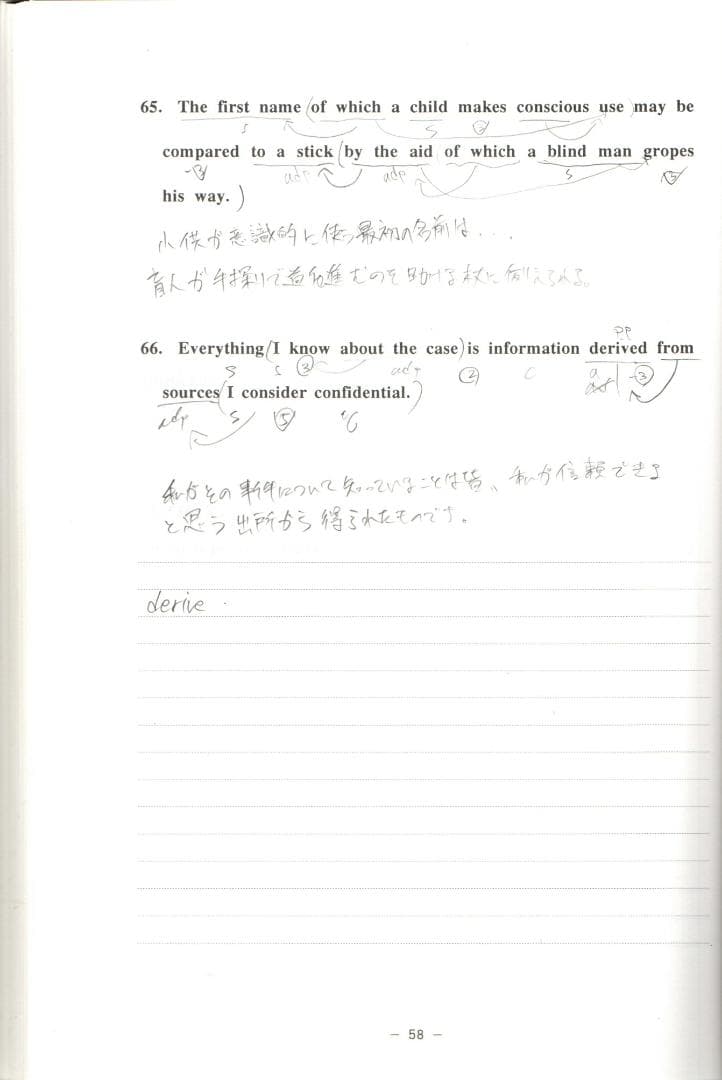 65. The first name (of which a child makes conscious use) may be
S S ③
compared to a stick (by the aid of which a blind man gropes
-③ adp adp S ③
his way.)
小供が意識的に使う最初の名前は...
盲人が手探りで道を進むのを助ける杖に例えられる。
PP
66. Everything (I know about the case) is information derived from
S S ③ adp ② C a -③
sources (I consider confidential.)
adp S ⑤ C
私がその事件について知っていることは皆、私が信頼できる
と思う出所から得られたものです。
derive
- 58 -